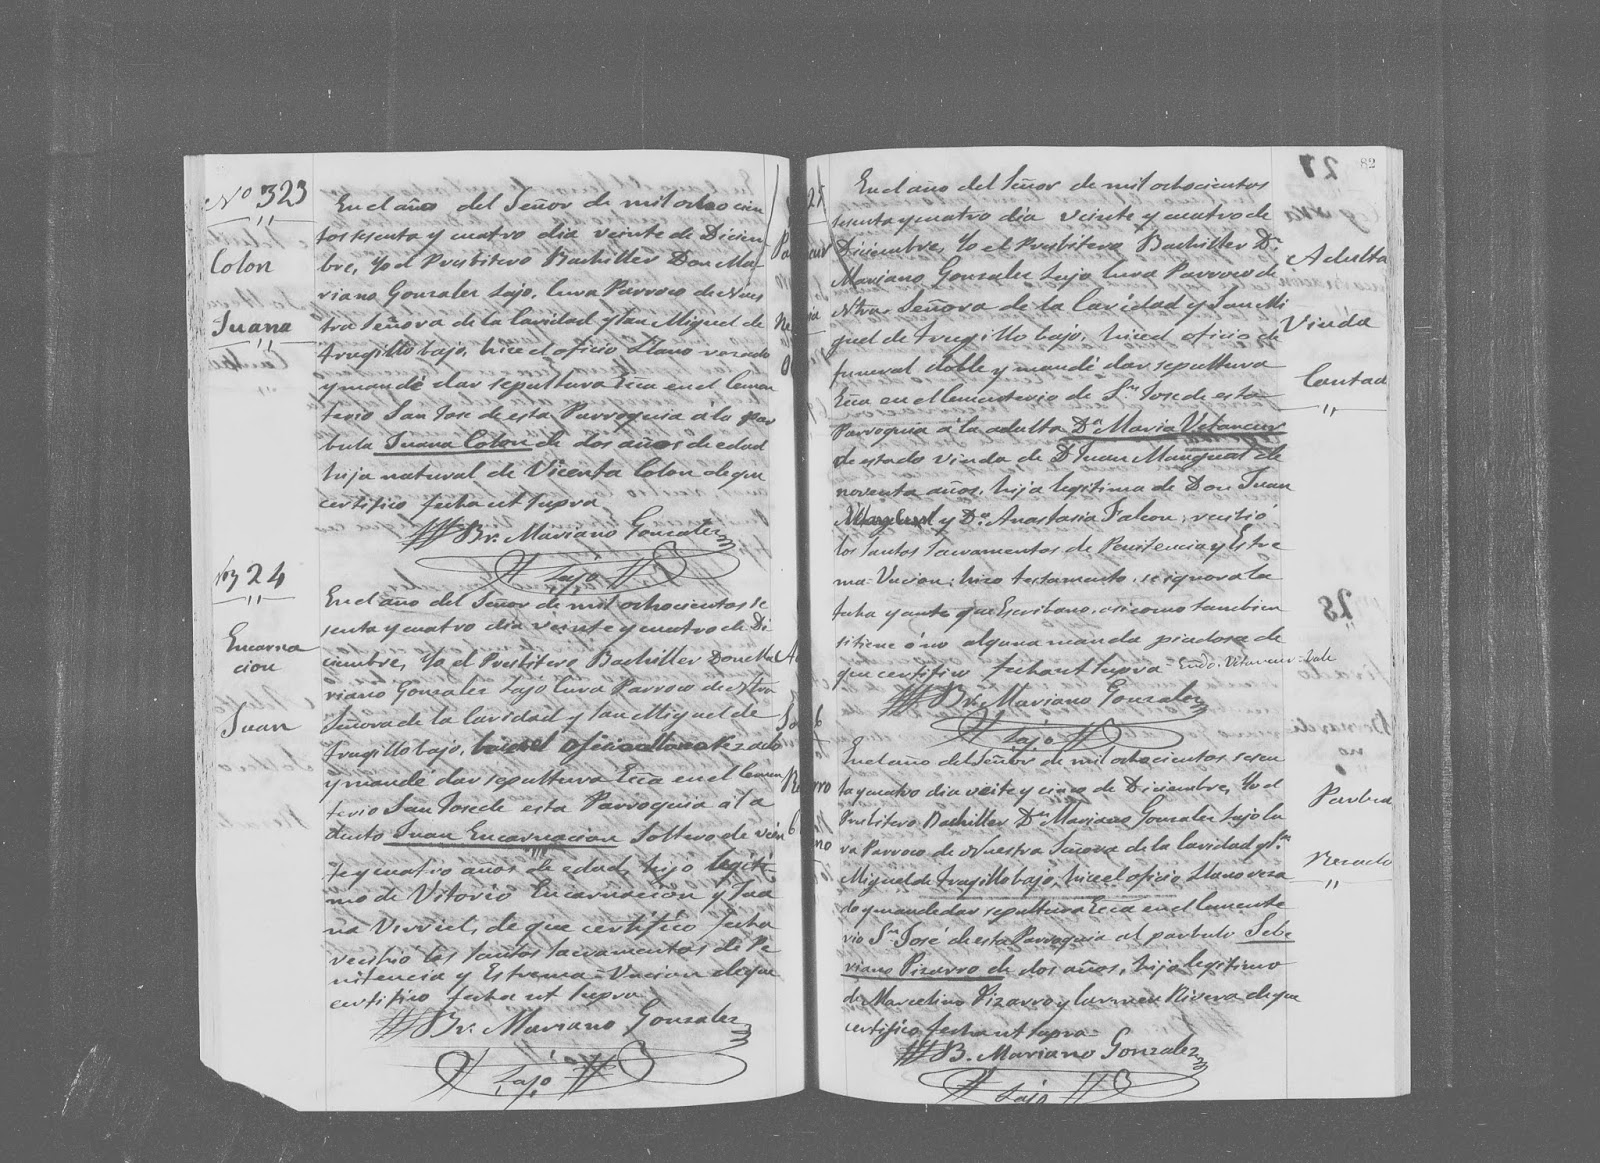 Nº 323
Colon
Juana
En el año del Señor de mil ochocien
tos sesenta y cuatro dia veinte de Diciem
bre, Yo el Presbitero Bachiller Don Ma
riano Gonzalez Lajo, Cura Parroco de Nues
tra Señora de la Caridad y San Miguel de
trugillo bajo, hice el oficio Llano rezado
y mandé dar sepultura Ecca en el Cemen
terio San Jose de esta Parroquia á la par
bula Juana Colon de dos años de edad
hija natural de Vicenta Colon de que
certifico fecha ut supra
Br. Mariano Gonzalez
Lajo
324
Encarna
cion
Juan
En el año del Señor de mil ochocientos se
senta y cuatro dia veinte y cuatro de Di
ciembre, Yo el Presbitero Bachiller Don Ma
riano Gonzalez Lajo Cura Parroco de Ntra
Señora de la Caridad y San Miguel de
trugillo bajo, hice el oficio llano rezado
y mandé dar sepultura Ecca en el Cemen
terio San Jose de esta Parroquia a la
dulto Juan Encarnacion Soltero de vein
te y cuatro años de edad, hijo legiti
mo de Vitorio Encarnacion y Jua
na Virriel, de que certifico fecha
recibió los santos sacramentos de Pe
nitencia y Estrema-Uncion de que
certifico fecha ut supra
Br. Mariano Gonzalez
Lajo
82
En el año del Señor de mil ochocientos
sesenta y cuatro dia veinte y cuatro de
Diciembre, Yo el Presbitero Bachiller Dn
Mariano Gonzalez Lajo Cura Parroco de
Ntra Señora de la Caridad y San Mi
guel de trugillo bajo, hice el oficio de
funeral doble y mandé dar sepultura
Ecca en el Cementerio de Sn Jose de esta
Parroquia á la adulta Da Maria Vetancur
de estado viuda de D Juan Mangual de
noventa años, hija legitima de Don Juan
y Da Anastasia Falcon, recibió
los santos sacramentos de Penitencia y Estre
ma-Uncion; hizo testamento, se ignora la
fecha y ante que Escribano, asi como tambien
si tiene ó no alguna manda piadosa de
que certifico fecha ut supra - Endo. Vetancur - Vale
Br. Mariano Gonzalez
Lajo
Adulta
Viuda
Cantad
En el año del Señor de mil ochocientos sesen
ta y cuatro dia veite y cinco de Diciembre, Yo el
Presbitero Bachiller Dn Mariano Gonzalez Lajo Cu
ra Parroco de Nuestra Señora de la Caridad y Sn
Miguel de trugillo bajo, hice el oficio Llano reza
do y mandé dar sepultura Ecca en el Cemente
rio Sn José de esta Parroquia al parbulo Sebe
riano Pizarro de dos años, hijo legitimo
de Marcelino Pizarro y Carmen Rivera de que
certifico fecha ut supra
B. Mariano Gonzalez
Lajo
Parbul
Rezado